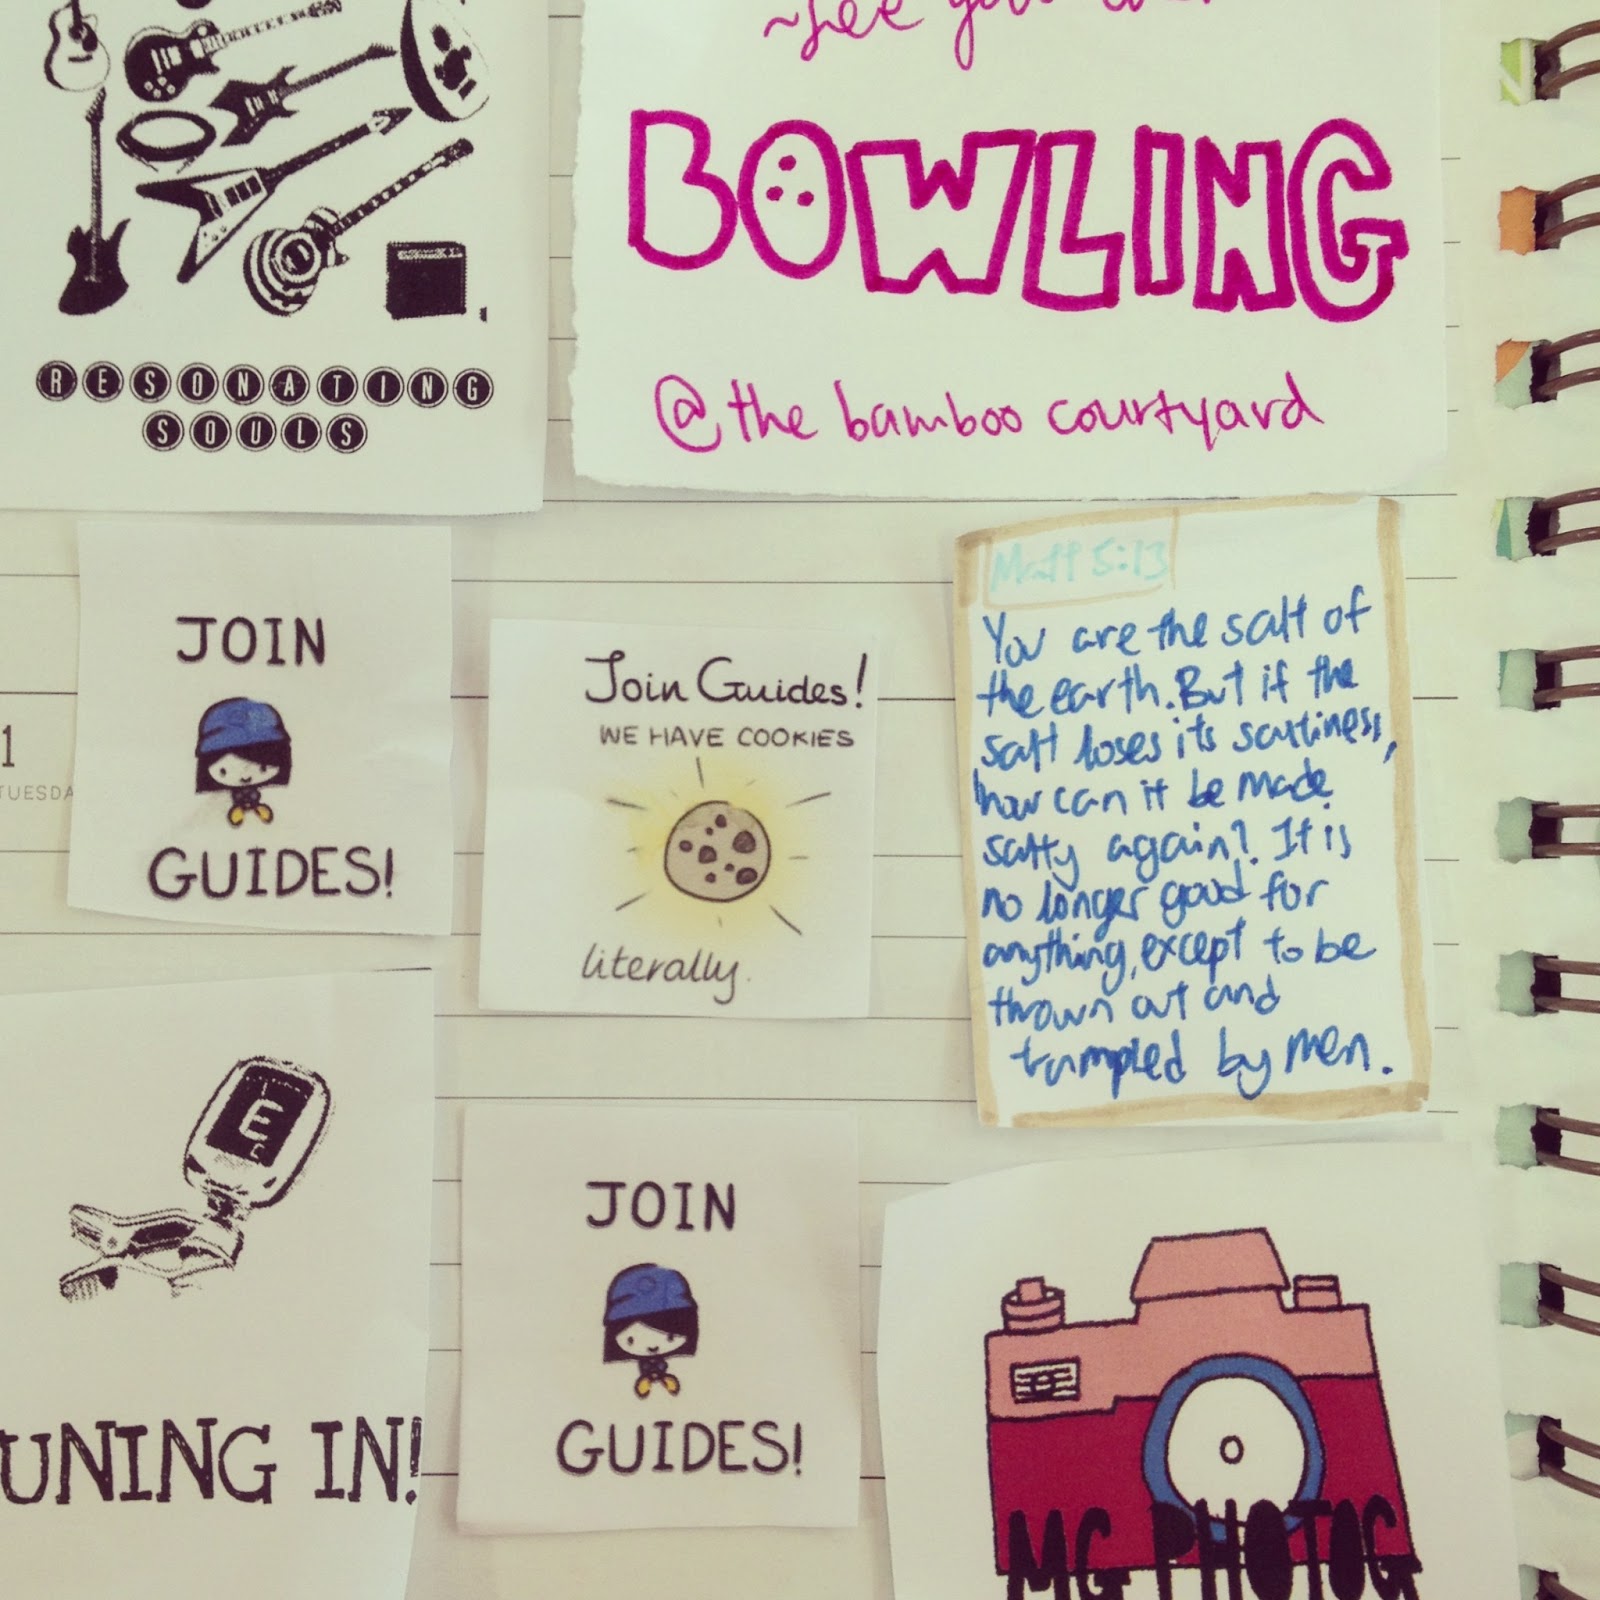 RESONATING
SOULS
~See you
BOWLING
@ the bamboo courtyard
JOIN
GUIDES!
Join Guides!
WE HAVE COOKIES
literally.
Matt 5:13
You are the salt of
the earth. But if the
salt loses its saltiness,
how can it be made
salty again? It is
no longer good for
anything, except to be
thrown out and
trampled by men.
1
TUESDA
E
UNING IN!
JOIN
GUIDES!
MG PHOTOG